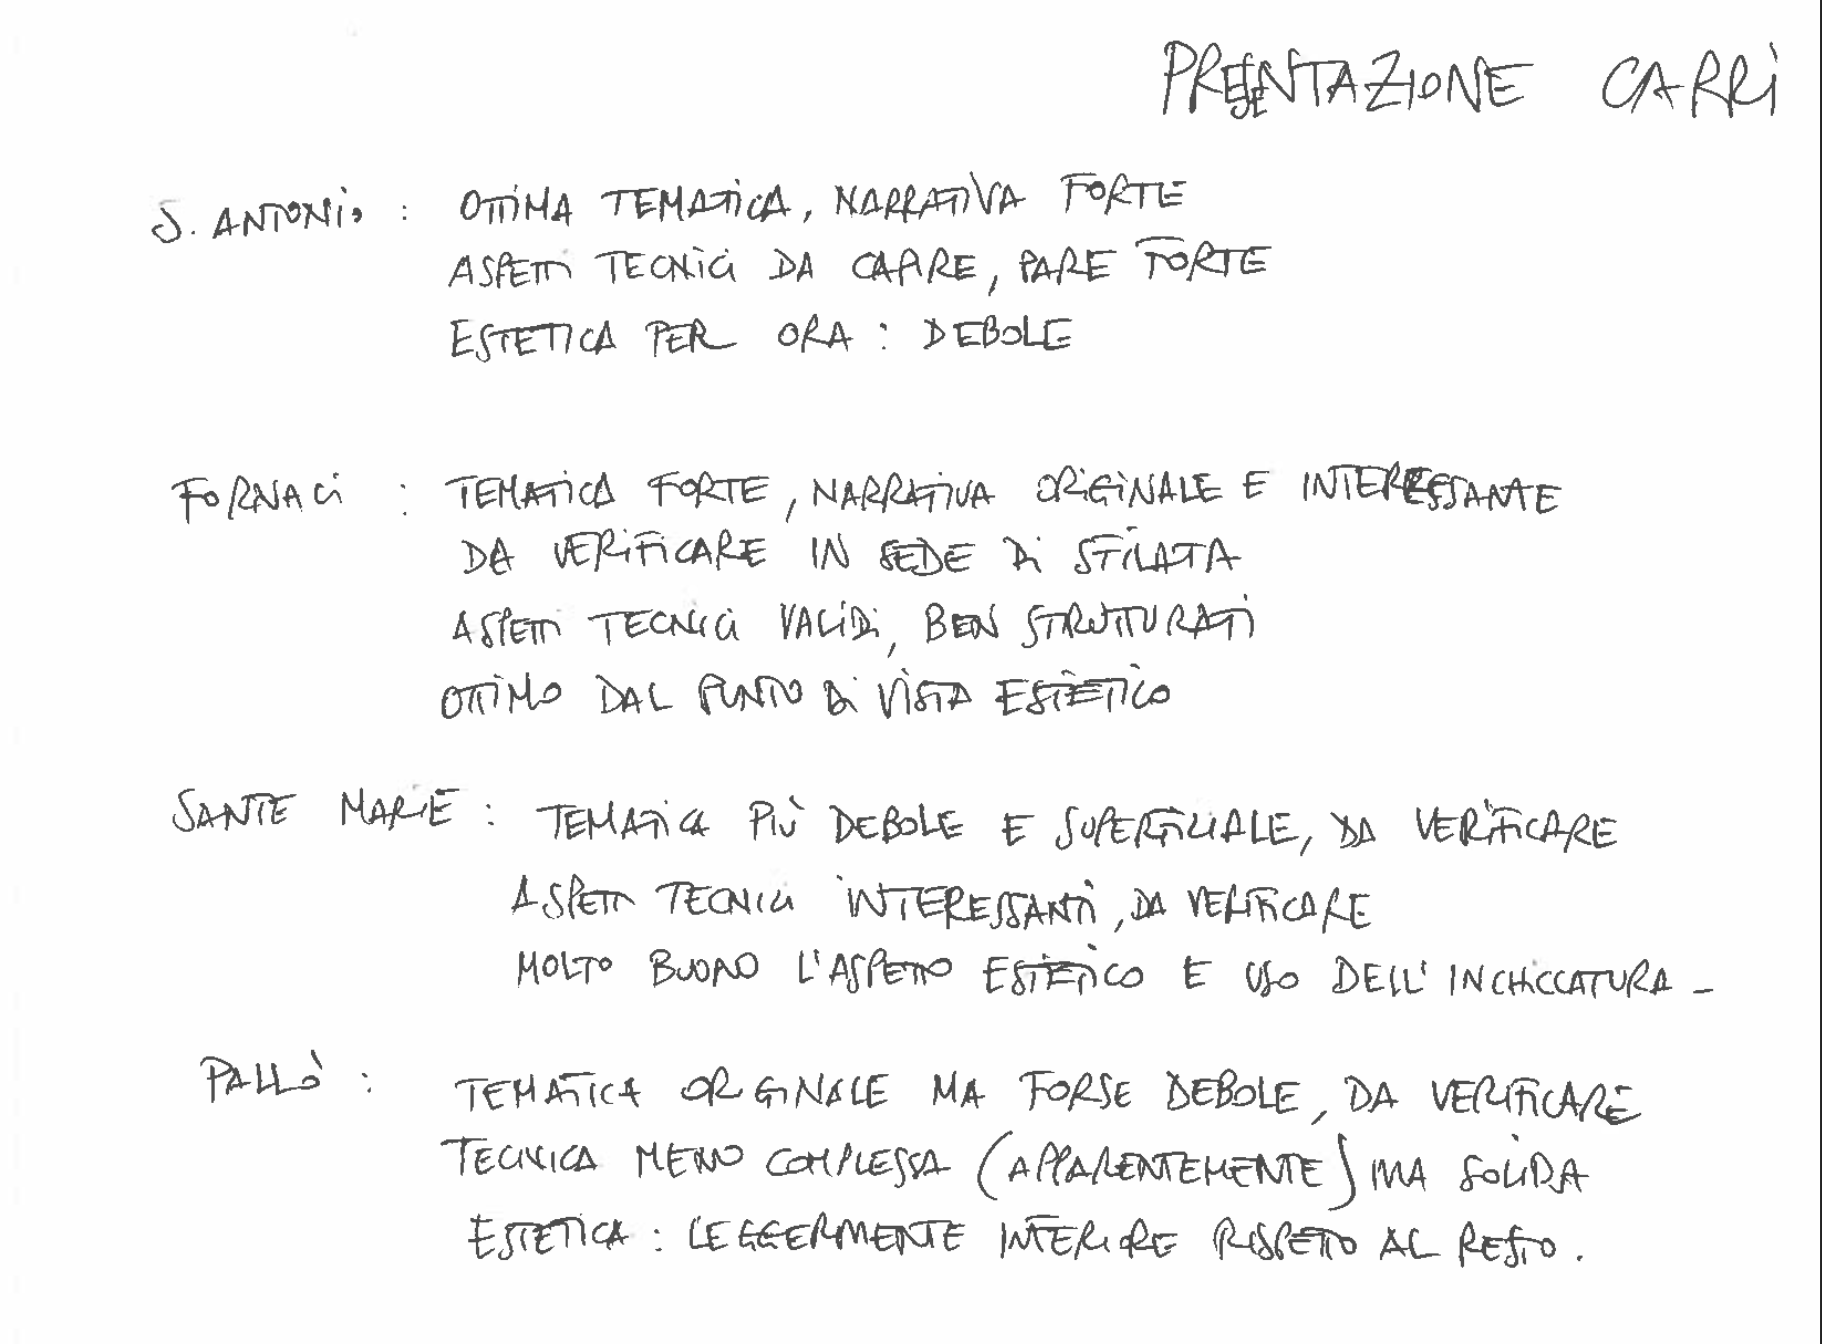 PRESENTAZIONE CARRI
S. ANTONIO : OTTIMA TEMATICA, NARRATIVA FORTE
ASPETTI TECNICI DA CAPIRE, PARE FORTE
ESTETICA PER ORA : DEBOLE
FORNACI : TEMATICA FORTE, NARRATIVA ORIGINALE E INTERESSANTE
DA VERIFICARE IN SEDE DI SFILATA
ASPETTI TECNICI VALIDI, BEN STRUTTURATI
OTTIMO DAL PUNTO DI VISTA ESTETICO
SANTE MARIE : TEMATICA PIÙ DEBOLE E SUPERFICIALE, DA VERIFICARE
ASPETTI TECNICI INTERESSANTI, DA VERIFICARE
MOLTO BUONO L'ASPETTO ESTETICO E USO DELL'INCHICCATURA -
PALLÒ : TEMATICA ORIGINALE MA FORSE DEBOLE, DA VERIFICARE
TECNICA MENO COMPLESSA (APPARENTEMENTE) MA SOLIDA
ESTETICA : LEGGERMENTE INFERIORE RISPETTO AL RESTO.